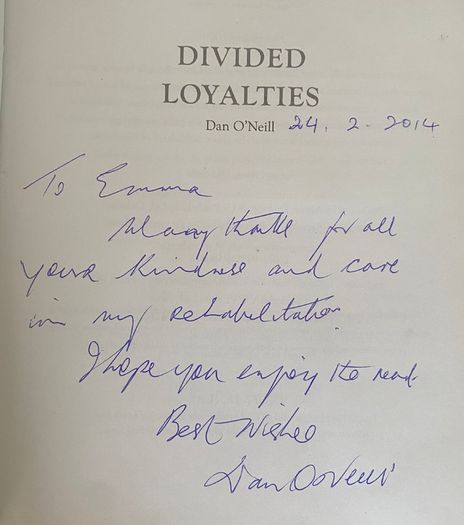 DIVIDED
LOYALTIES
Dan O'Neill 24. 2. 2014
To Emma
Many thanks for all
your kindness and care
in my rehabilitation
I hope you enjoy the read
Best Wishes
Dan O'Neill